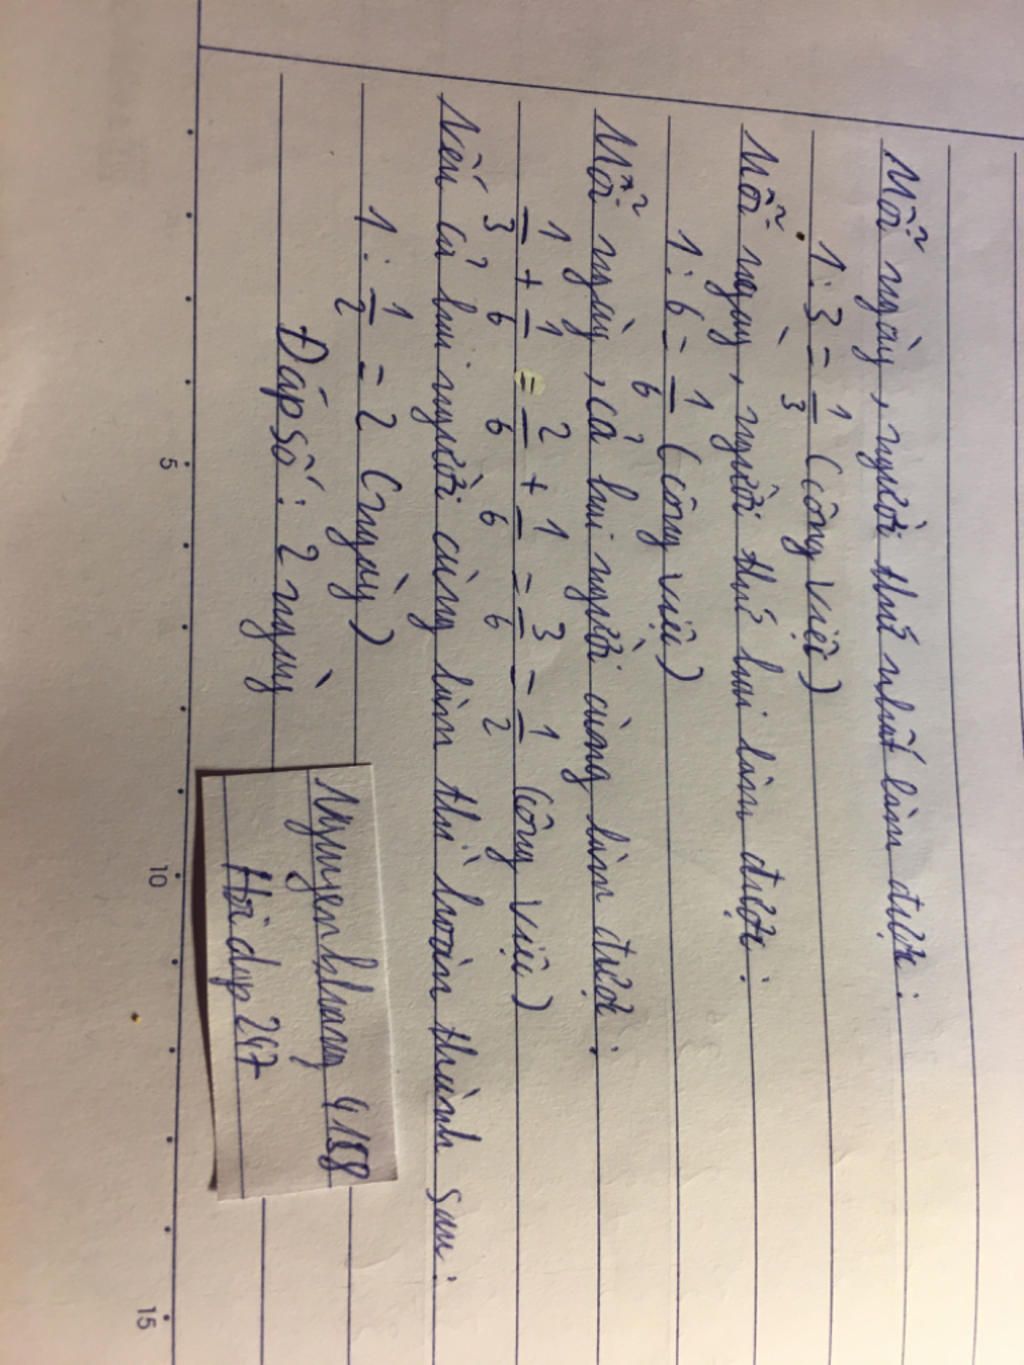 Mỗi ngày, người thứ nhất làm được:
1 : 3 = 1/3 (công việc)
Mỗi ngày, người thứ hai làm được:
1 : 6 = 1/6 (công việc)
Mỗi ngày, cả hai người cùng làm được:
1/3 + 1/6 = 2/6 + 1/6 = 3/6 = 1/2 (công việc)
Nếu cả hai người cùng làm thì hoàn thành sau:
1 : 1/2 = 2 (ngày)
Đáp số: 2 ngày
Nguyenkhang4158
Hoidap247
5
10
15